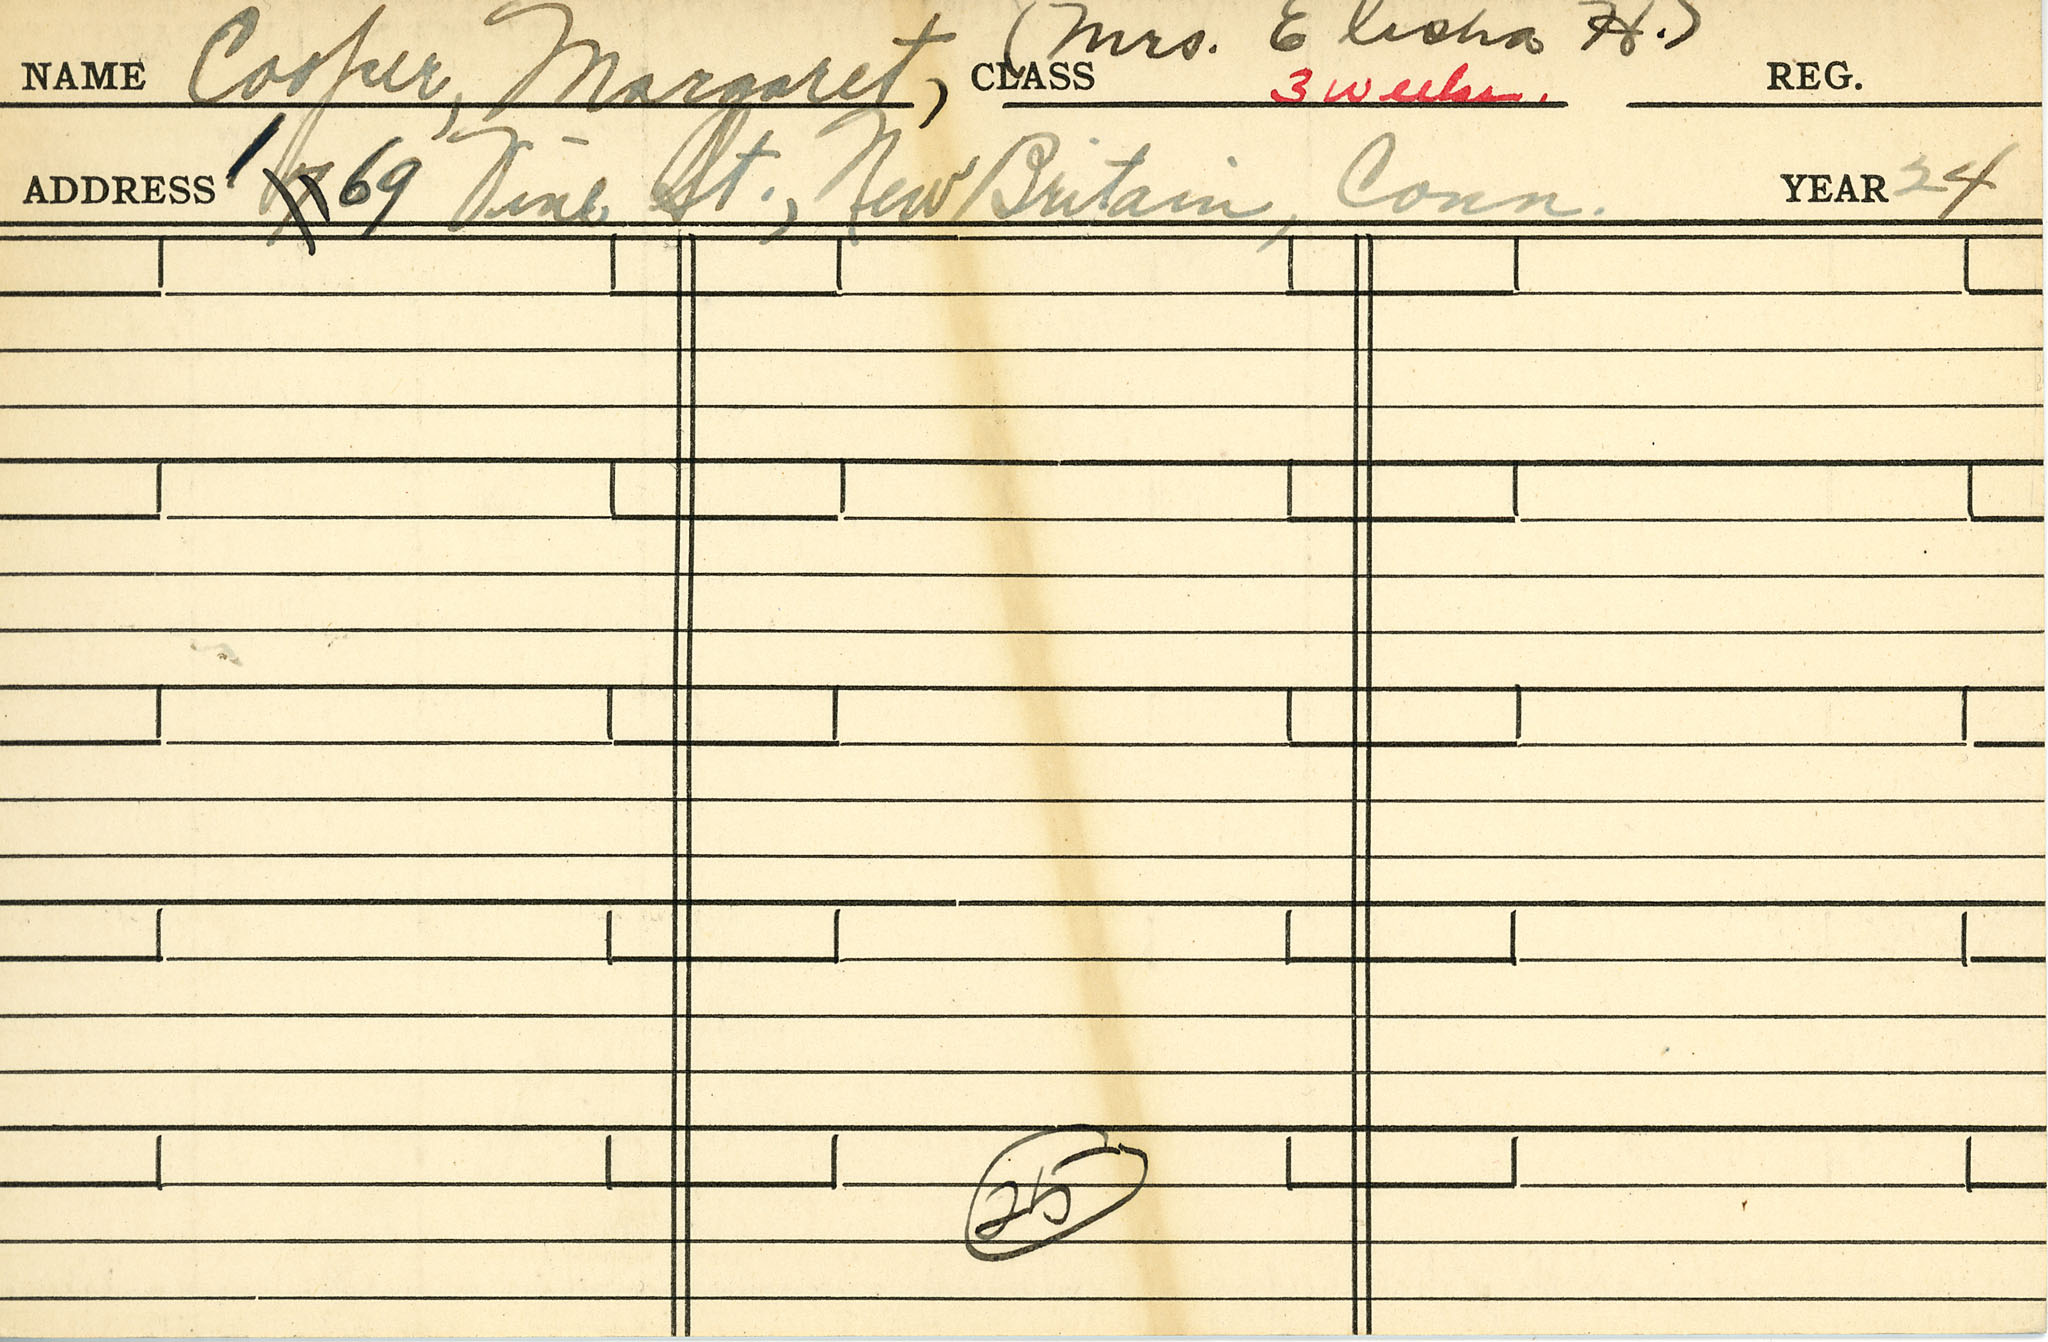 NAME Cooper, Margaret, (Mrs. Elisha H.) CLASS 3 weeks. REG.
ADDRESS 169 Vine St., New Britain, Conn. YEAR 24
25